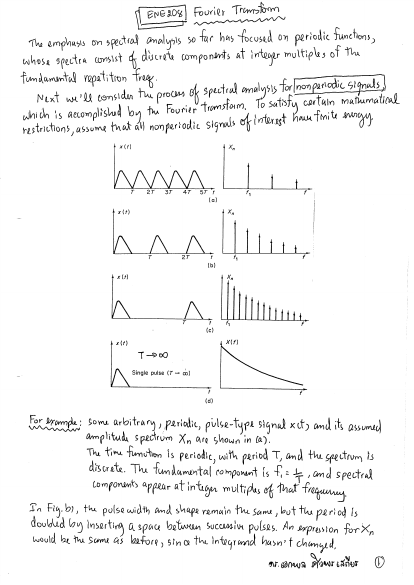 ENE208 Fourier Transform
The emphasis on spectral analysis so far has focused on periodic functions,
whose spectra consist of discrete components at integer multiples of the
fundamental repetition freq.
Next we'll consider the process of spectral analysis for nonperiodic signals,
which is accomplished by the Fourier transform. To satisfy certain mathematical
restrictions, assume that all nonperiodic signals of interest have finite energy.
x(t) Xn
T 2T 3T 4T 5T t f1 f
(a)
x(t) Xn
T 2T t f1 f
(b)
x(t) Xn
T t f1 f
(c)
x(t) X(f)
T → ∞
Single pulse (T → ∞)
t f
(d)
For example: some arbitrary, periodic, pulse-type signal x(t) and its assumed
amplitude spectrum Xn are shown in (a).
The time function is periodic, with period T, and the spectrum is
discrete. The fundamental component is f1 = 1/T, and spectral
components appear at integer multiples of that frequency.
In Fig. b), the pulse width and shape remain the same, but the period is
doubled by inserting a space between successive pulses. An expression for Xn
would be the same as before, since the integrand hasn't changed.
ดร. 1